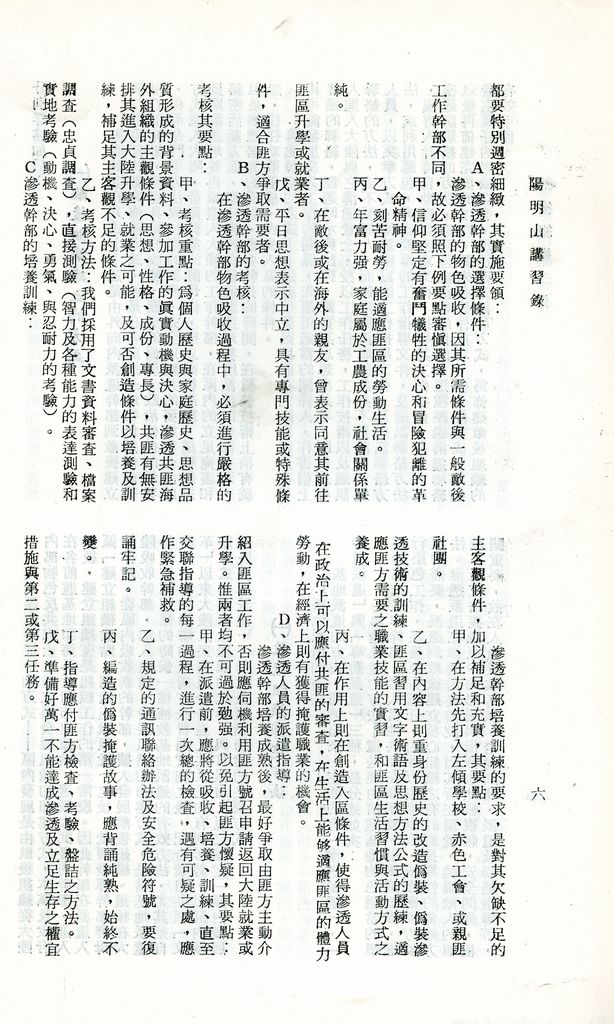 陽明山講習錄
六
都要特別週密細緻，其實施要領：
A、滲透幹部的選擇條件：
滲透幹部的物色吸收，因其所需條件與一般敵後
工作幹部不同，故必須照下例要點審愼選擇。
甲、信仰堅定有奮鬥犧牲的決心和冒險犯難的革
命精神。
乙、刻苦耐勞，能適應匪區的勞動生活。
丙、年富力强，家庭屬於工農成份，社會關係單
純。
丁、在敵後或在海外的親友，曾表示同意其前往
匪區升學或就業者。
戊、平日思想表示中立，具有專門技能或特殊條
件，適合匪方爭取需要者。
B、滲透幹部的考核：
在滲透幹部物色吸收過程中，必須進行嚴格的
考核其要點：
甲、考核重點：爲個人歷史與家庭歷史、思想品
質形成的背景資料、參加工作的眞實動機與決心，滲透共匪海
外組織的主觀條件（思想、性格、成份、專長），共匪有無安
排其進入大陸升學、就業之可能，及可否創造條件以培養及訓
練，補足其主客觀不足的條件。
乙、考核方法：我們採用了文書資料審查、檔案
調查（忠貞調查），直接測驗（智力及各種能力的表達測驗和
實地考驗（動機、決心、勇氣、與忍耐力的考驗）。
C滲透幹部的培養訓練：
滲透幹部培養訓練的要求，是對其欠缺不足的
主客觀條件，加以補足和充實，其要點：
甲、在方法先打入左傾學校、赤色工會、或親匪
社團。
乙、在內容上則重身份歷史的改造僞裝、僞裝滲
透技術的訓練、匪區習用文字術語及思想方法公式的歷練，適
應匪方需要之職業技能的實習，和匪區生活習慣與活動方式之
養成。
丙、在作用上則在創造入區條件，使得滲透人員
在政治上可以應付共匪的審查，在生活上能够適應匪區的體力
勞動，在經濟上則有獲得掩護職業的機會。
D、滲透人員的派遣指導：
滲透幹部培養成熟後，最好爭取由匪方主動介
紹入匪區工作，否則應伺機利用匪方號召申請返回大陸就業或
升學。惟兩者均不可過於勉强。以免引起匪方懷疑，其要點：
甲、在派遣前，應將從吸收、培養、訓練、直至
交聯指導的每一過程，進行一次總的檢查，遇有可疑之處，應
作緊急補救。
乙、規定的通訊聯絡辦法及安全危險符號，要復
誦牢記。
丙、編造的僞裝掩護故事，應背誦純熟，始終不
變。
丁、指導應付匪方檢查、考驗、盤詰之方法。
戊、準備好萬一不能達成滲透及立足生存之權宜
措施與第二或第三任務。